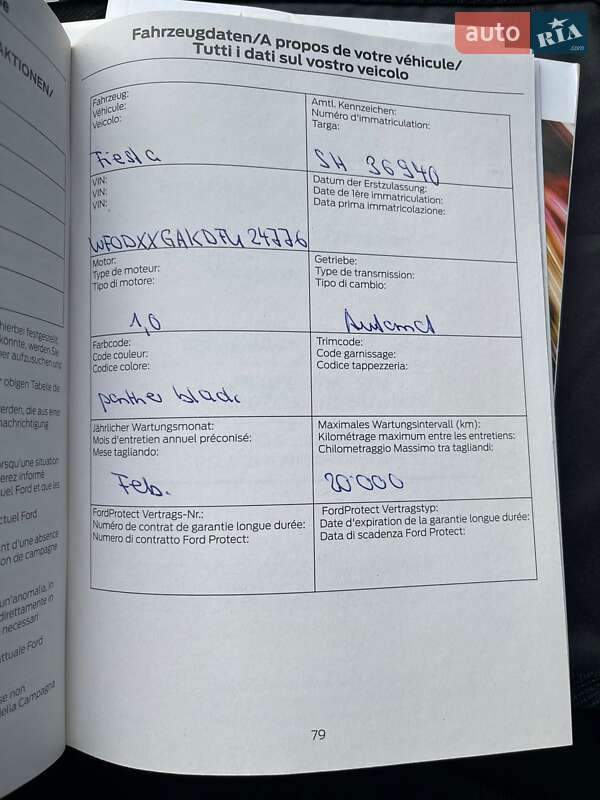 auto RIA.com
Fahrzeugdaten/A propos de votre véhicule/
Tutti i dati sul vostro veicolo
Fahrzeug:
Véhicule:
Veicolo:
Fiesta
Amtl. Kennzeichen:
Numéro d'immatriculation:
Targa:
SH 36940
VIN:
VIN:
VIN:
WF0DXXGAKDFU24776
Datum der Erstzulassung:
Date de 1ère immatriculation:
Data prima immatricolazione:
Motor:
Type de moteur:
Tipo di motore:
1,0
Getriebe:
Type de transmission:
Tipo di cambio:
Automat
Farbcode:
Code couleur:
Codice colore:
panther black
Trimcode:
Code garnissage:
Codice tappezzeria:
Jährlicher Wartungsmonat:
Mois d'entretien annuel préconisé:
Mese tagliando:
Feb.
Maximales Wartungsintervall (km):
Kilométrage maximum entre les entretiens:
Chilometraggio Massimo tra tagliandi:
20'000
FordProtect Vertrags-Nr.:
Numéro de contrat de garantie longue durée:
Numero di contratto Ford Protect:
FordProtect Vertragstyp:
Date d'expiration de la garantie longue durée:
Data di scadenza Ford Protect:
79
AKTIONEN/
hierbei festgestellt
könnte, werden Sie
her aufzusuchen und
r obigen Tabelle die
erden, die aus einer
nachrichtigung
orsqu'une situation
serez informé
tuel Ford et que les
ctuel Ford
nt d'une absence
on de campagne
un'anomalia, in
direttamente in
necessari
attuale Ford
se non
della Campagna